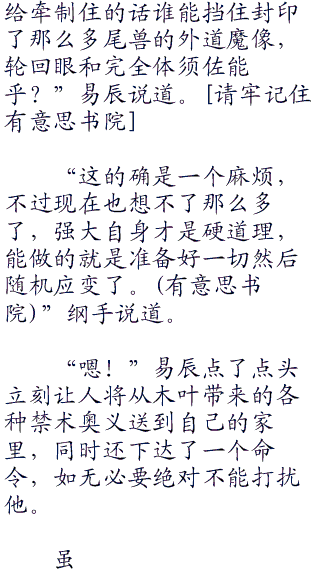 给牵制住的话谁能挡住封印
了那么多尾兽的外道魔像，
轮回眼和完全体须佐能
乎？”易辰说道。[请牢记住
有意思书院]
“这的确是一个麻烦，
不过现在也想不了那么多
了，强大自身才是硬道理，
能做的就是准备好一切然后
随机应变了。(有意思书
院)”纲手说道。
“嗯！”易辰点了点头
立刻让人将从木叶带来的各
种禁术奥义送到自己的家
里，同时还下达了一个命
令，如无必要绝对不能打扰
他。
虽